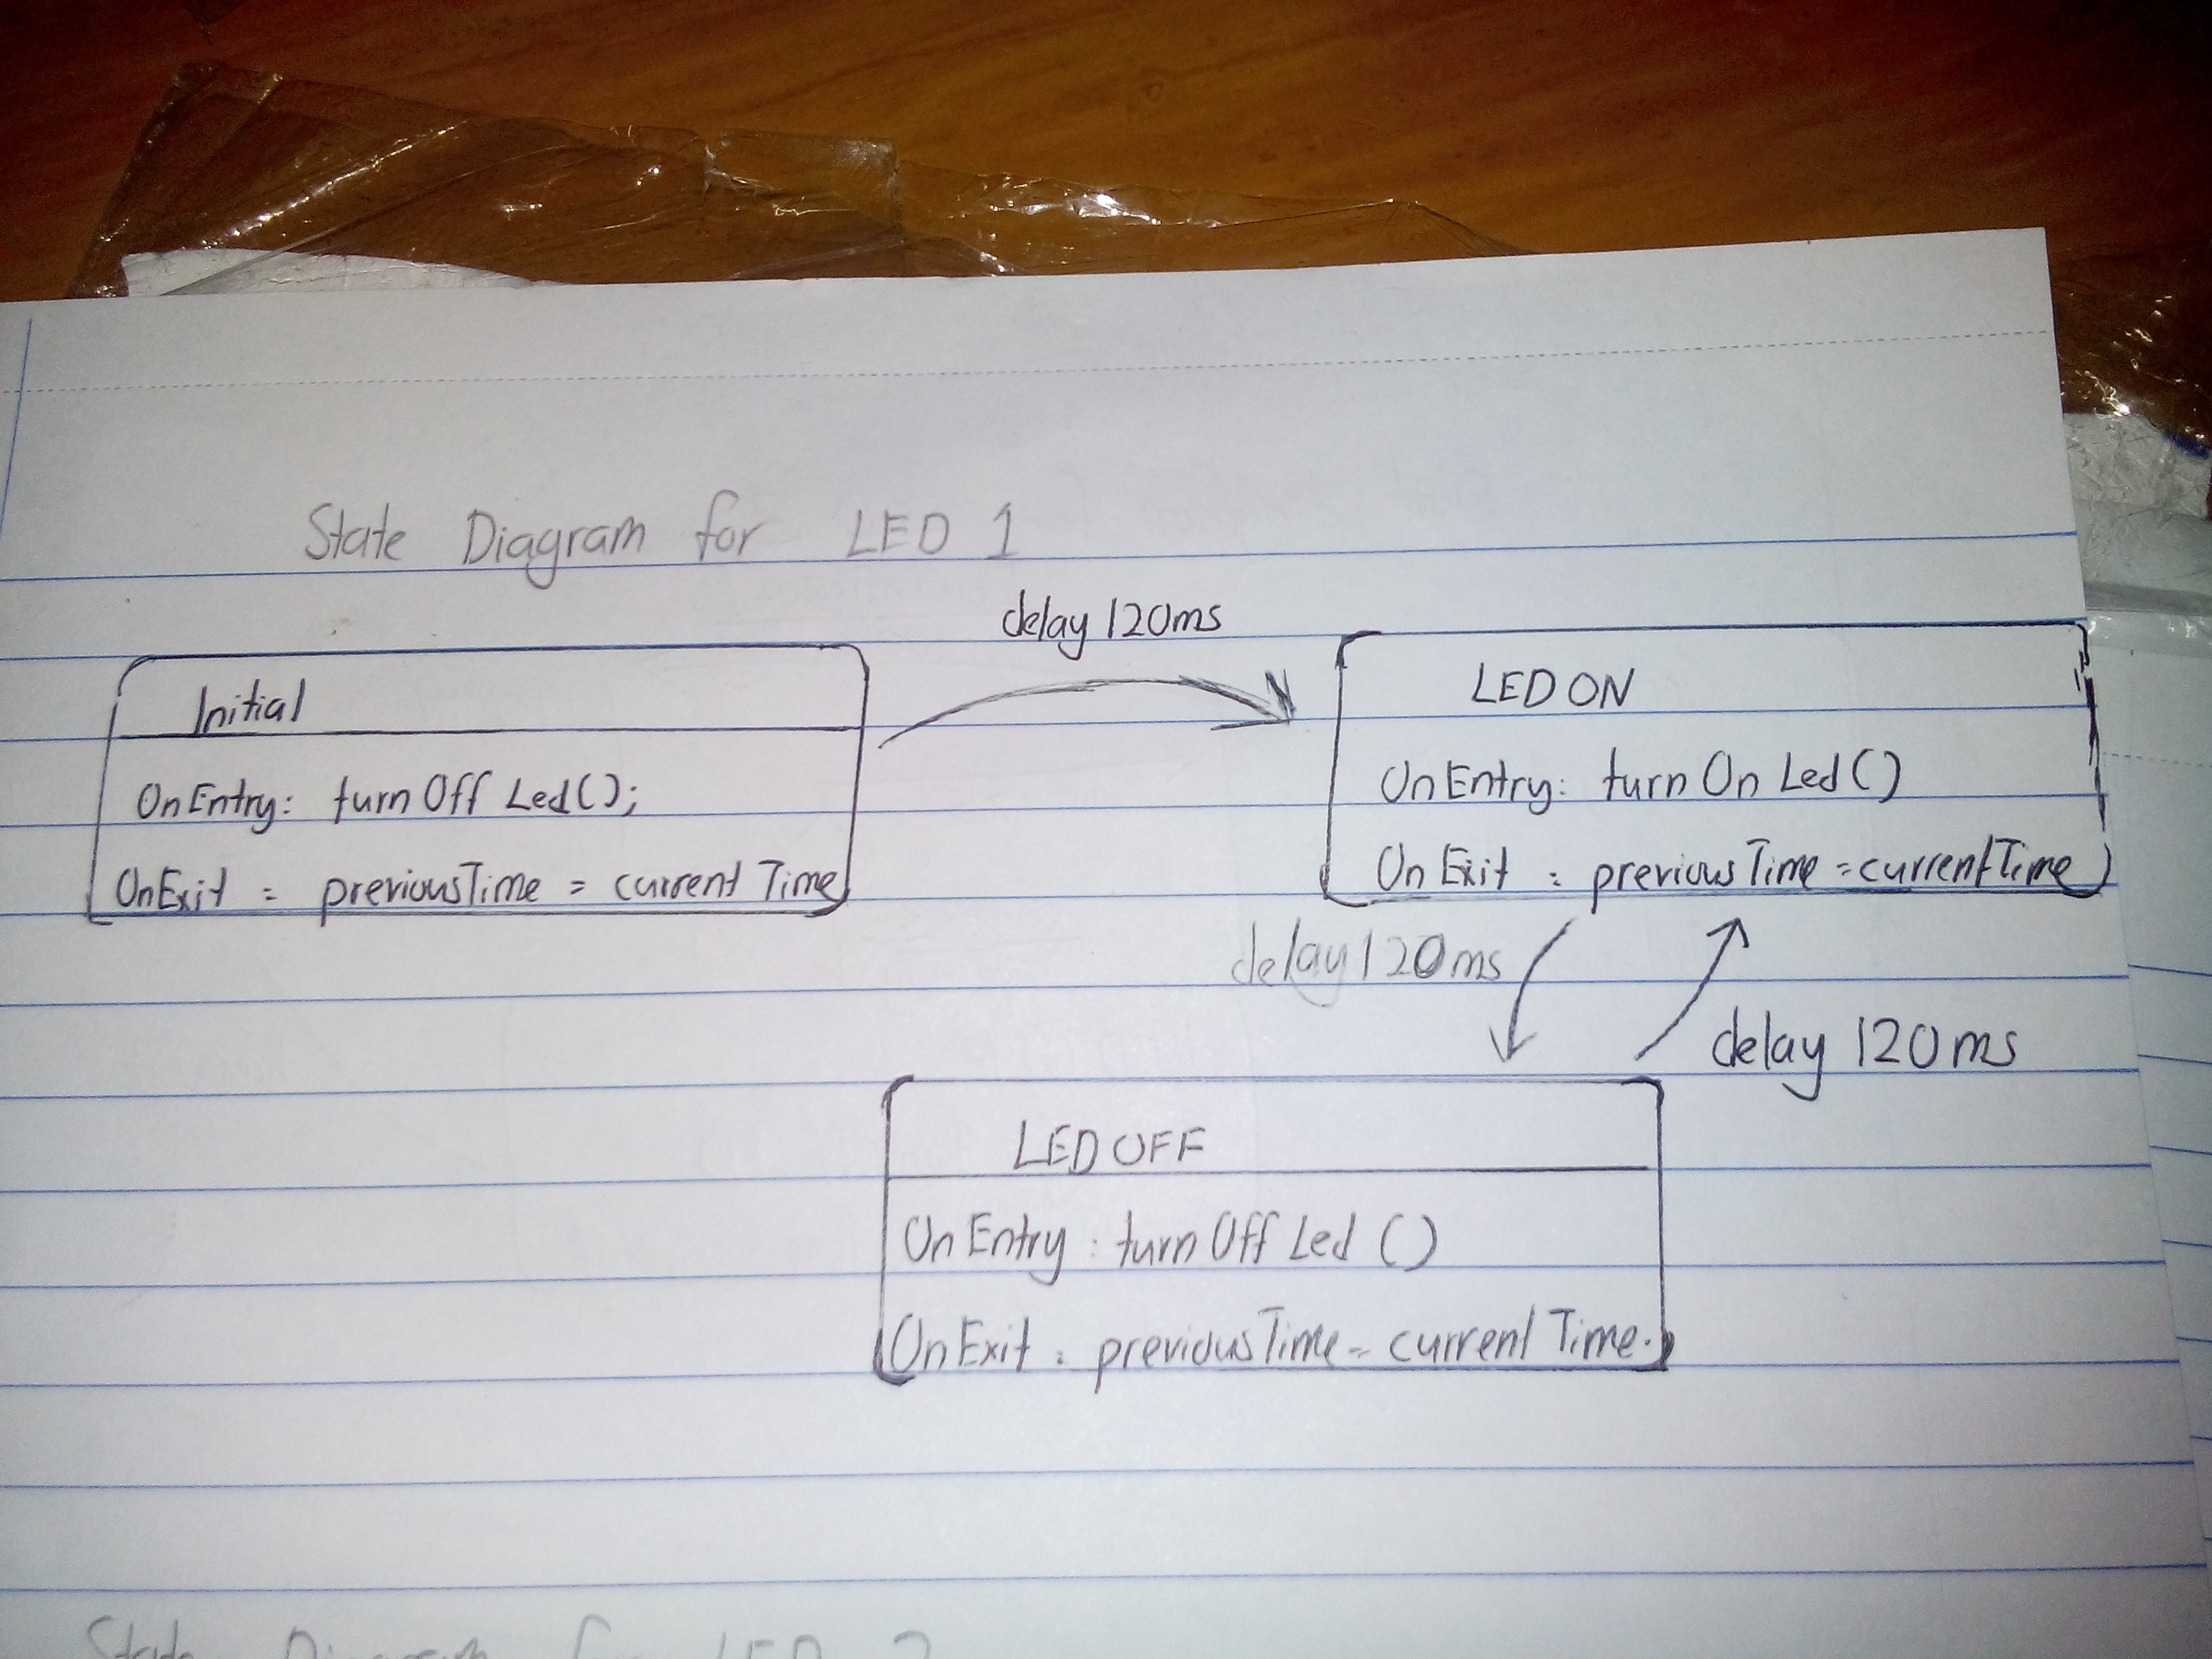 State Diagram for LED 1
delay 120ms
Initial
OnEntry: turnOff Led();
OnExit = previousTime = current Time
LED ON
OnEntry: turnOn Led()
OnExit : previousTime = currentTime
delay 120ms
delay 120ms
LED OFF
OnEntry : turnOff Led ()
OnExit : previousTime = current Time.
State Diagram for LED 2